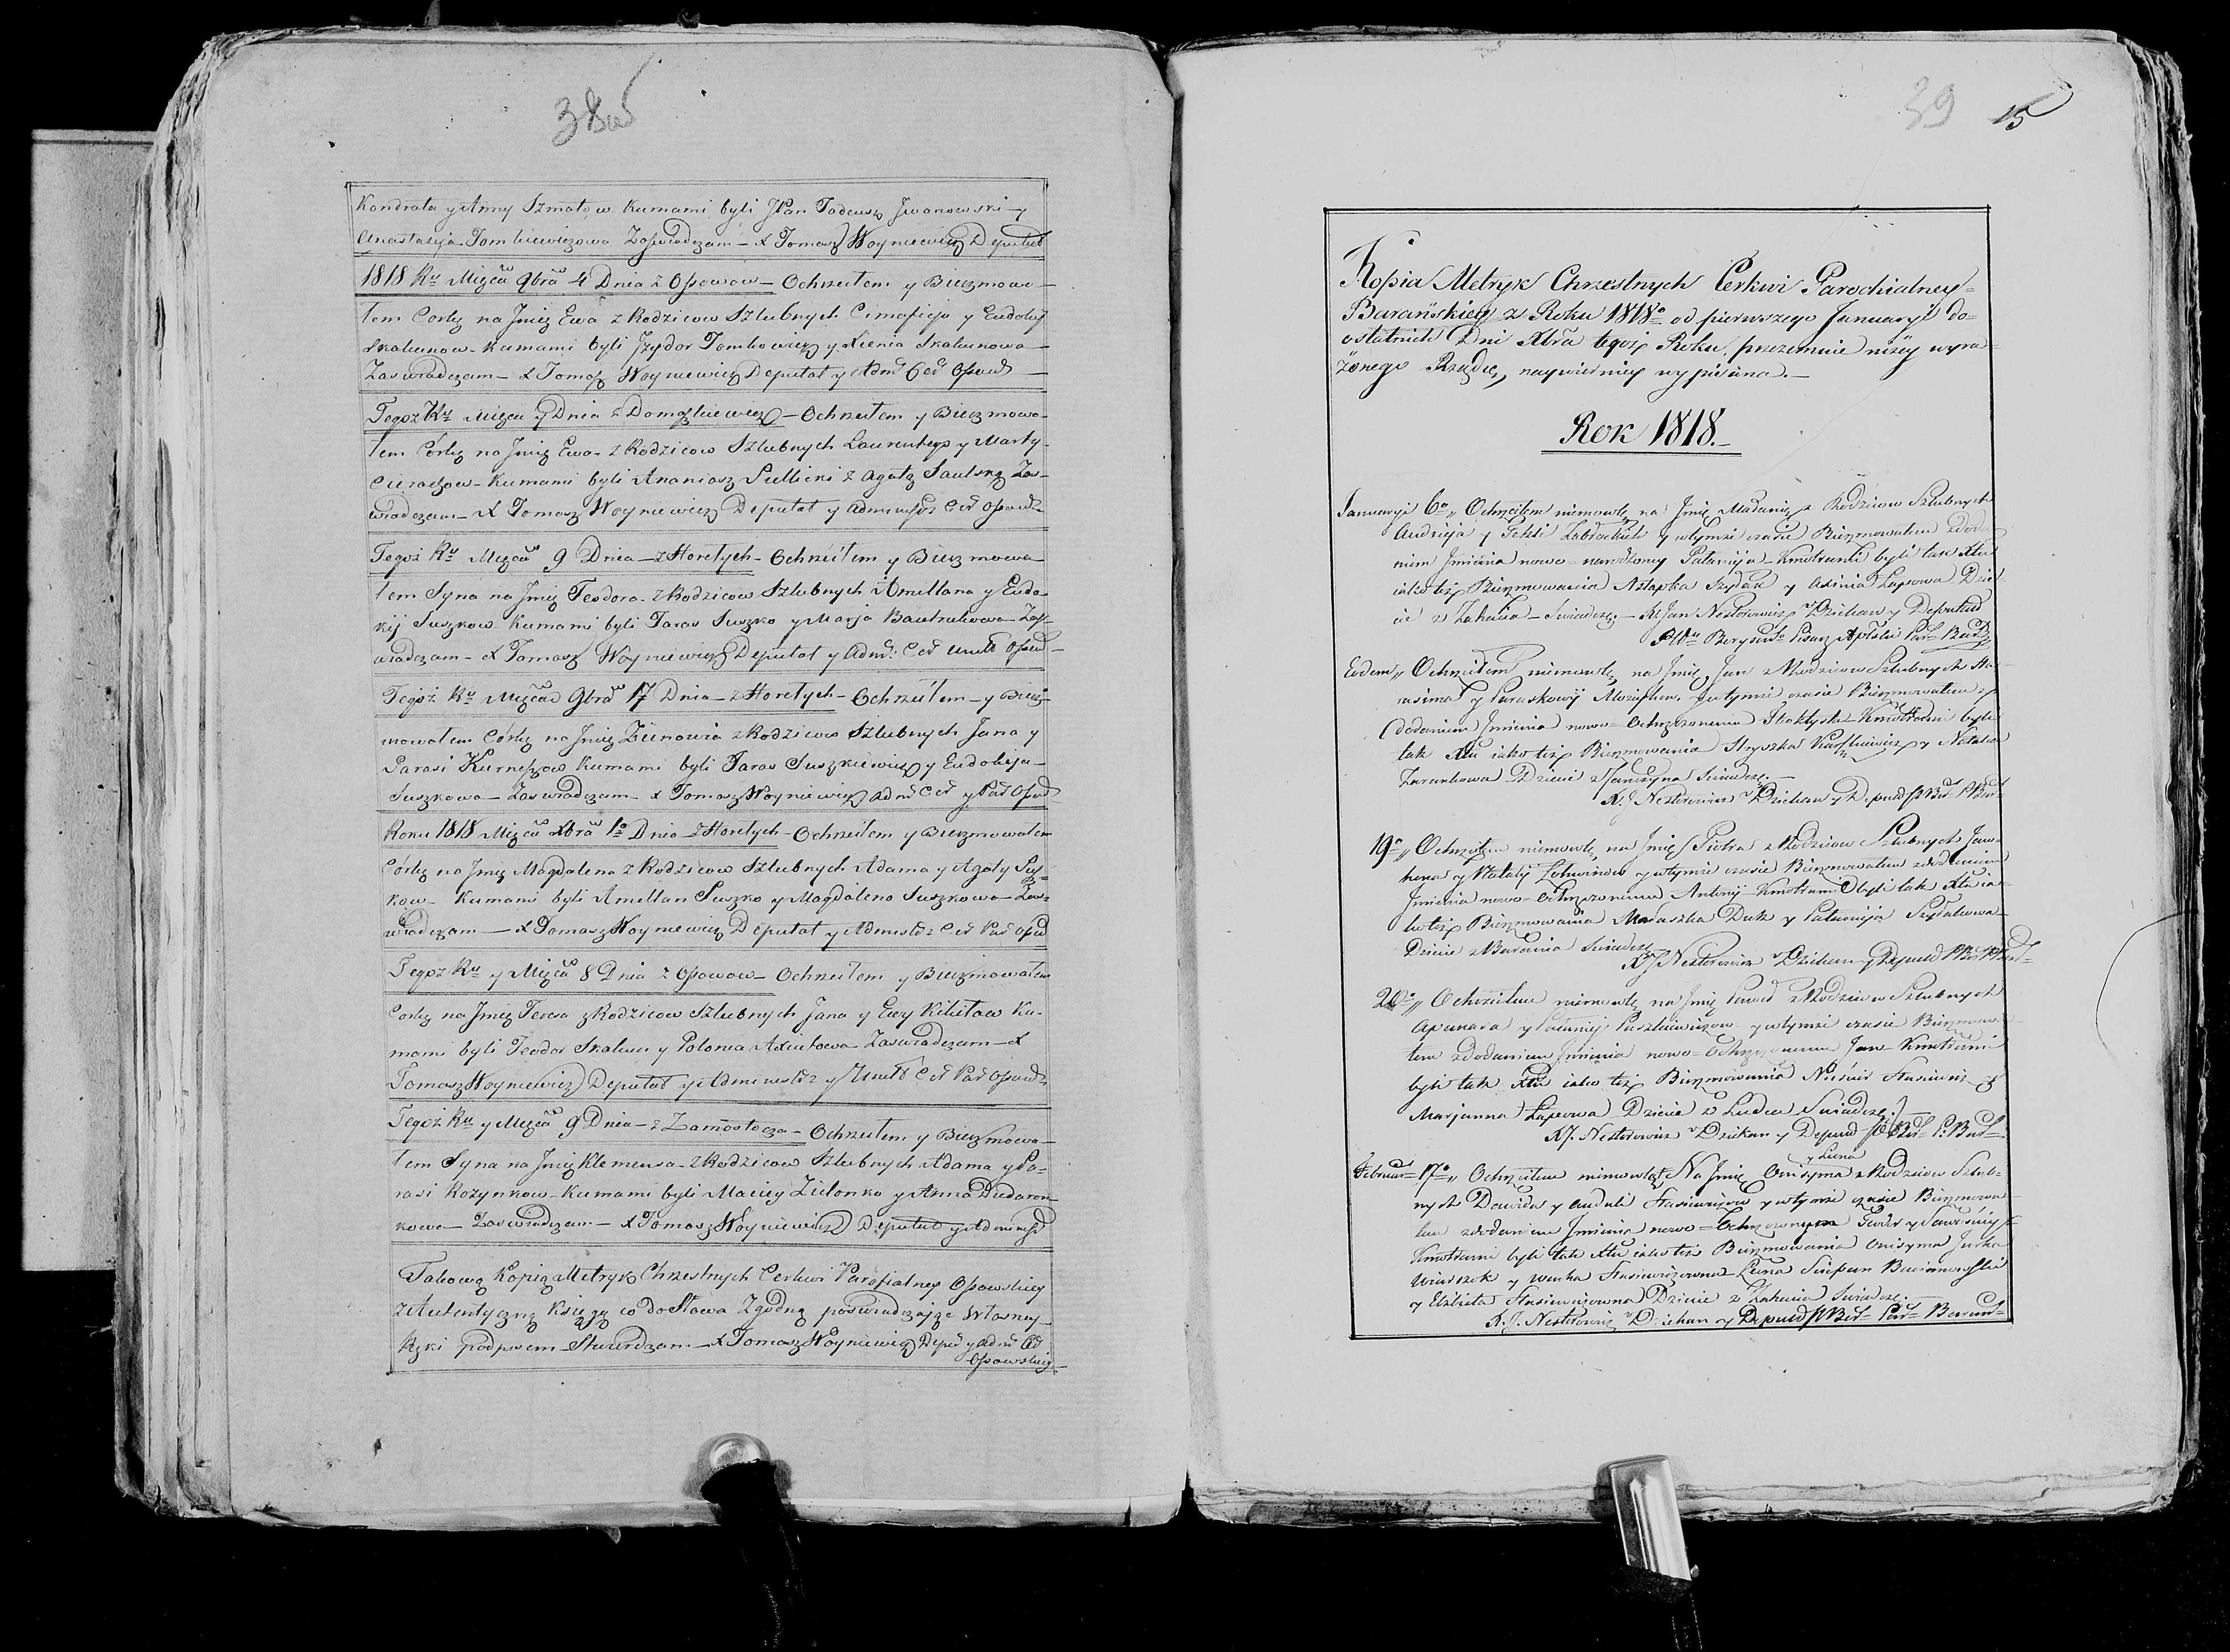 38
Kondrata y Anny Szmatow Kumami byli JPan Tadeusz Jwanowski y
Anastazija Tomkiewiczowa Zaswiadczam – X Tomasz Woyniewicz Deputat
1818 Ru Mięca 9bra 4 Dnia z Ossowow – Ochrzciłem y Bierzmowa-
łem Corkę na Jmię Ewa z Rodzicow Szlubnych Cimofieja y Eudokij
Skakunow – Kumami byli Jzydor Tomkowicz y Xienia Skakunowa
Zaswiadczam – X Tomasz Woyniewicz Deputat y Admr Cer Ossows
Tegoż Ru Mięca 7 Dnia z Domaszkiewicz – Ochrzciłem y Bierzmowa-
łem Córkę na Jmię Ewa – z Rodzicow Szlubnych Laurentego y Marty
Cieraszow – Kumami byli Ananiasz Sielicki z Agatą Sautską Zas-
wiadczam – X Tomasz Woyniewicz Deputat y Administr Cer Ossows
Tegoż Ru Mięca 9 Dnia – z Horełych – Ochrzciłem y Bierzmowa-
łem Syna na Jmię Teodora – z Rodzicow Szlubnych Amellana y Eudo-
kij Suszkow – Kumami byli Taras Suszko y Marja Bautrukowa Zas-
wiadczam – X Tomasz Woyniewicz Deputat y Admr: Cer Ossows
Tegoż Ru Mięca 9bra 17 Dnia – z Horełych – Ochrzciłem – y Bierz-
mowałem Córkę na Jmię Zienowia z Rodzicow Szlubnych Jana y
Parasi Kurneszow Kumami byli Taras Suszkiewicz y Eudokija
Suszkowa – Zaswiadczam – X Tomasz Woyniewicz Admr Cer y Par Ossows
Roku 1818 Mięca Xbra 1o Dnia – z Horełych – Ochrzciłem y Bierzmowałem
Córkę na Jmię Magdalena z Rodzicow Szlubnych Adama y Agaty Susz-
kow – Kumami byli Amellan Suszko y Magdalena Suszkowa – Zas-
wiadczam – X Tomasz Woyniewicz Deputat y Administr Cer Par Ossows
Tegoż Ru y Mięca 8 Dnia z Ossowow – Ochrzciłem y Bierzmowałem
Corkę na Jmię Teresa z Rodzicow Szlubnych Jana y Ewy Kikiłow Ku-
mami byli Teodor Skakun y Polonia Axiutowa – Zaswiadczam – X
Tomasz Woyniewicz Deputat y Administr y Cer Par Ossows
Tegoż Ru y Mięca 9 Dnia – z Zamostocza – Ochrzciłem y Bierzmowa-
łem Syna na Jmię Klemensa – z Rodzicow Szlubnych Adama y Pa-
rasi Rożynkow – Kumami byli Maciey Zielonko y Anna Dudaron-
kowa – Zaswiadczam – X Tomasz Woyniewicz Deputat y Administr
Takową Kopią Metryk Chrzestnych Cerkwi Parafialney Ossowskiey
z Autentyczną Księgą co do Słowa Zgodną poswiadczając Własney
Ręki podpisem Stwierdzam – X Tomasz Woyniewicz Depu y Admr Cer
Ossowskiey
39 15
Kopia Metryk Chrzestnych Cerkwi Parochialney
Barańskiey z Roku 1818o od pierwszego January do
ostatnich Dni Xbra tegoż Roku, przezemnie niżey wyra-
żonego Rządcę, naywierniey wypisana. –
Rok 1818. –
January 6o „ Ochrzciłem niemowlę na Jmię Małanię z Rodzicow Szlubnych
Andrzeja y Tekli Zabrockich y wtymże czasie Bierzmowałem zdoda-
niem Jmienia nowo narodzoney Pałanija – Kmotrami byli tak Xtu
iako też Bierzmowania Astapka Szydak y Axinia Łapsowa Dzie-
cie z Zahacia – Swiadczę – X Jan Nesterowicz VDziekan y Deputat
Pisarz
Eodem „ Ochrzciłem niemowlę na Jmię Jan z Rodzicow Szlubnych Ha-
rasima y Paraskowij y wtymże czasie Bierzmowałem z
dodaniem Jmienia nowo Ochrzczonemu Kmotrami byli
tak Xtu iako też Bierzmowania Hryszka y Natalia
Dziecie z Swiadczę. –
X. J. Nesterowicz VDziekan y Deputat
19o „ Ochrzciłem niemowlę na Jmię Piotra z Rodzicow Szlubnych Jaw-
hena y Natalij y wtymże czasie Bierzmowałem zdodaniem
Jmienia nowo Ochrzczonemu Antonij Kmotrami byli tak Xtu ia-
ko też Bierzmowania Maraszka Duk y Pałanija Szydakowa
Dziecie z Barania Swiadczę
X J Nesterowicz VDziekan y Deputat
20o „ Ochrzciłem niemowlę na Jmię Paweł z Rodzicow Szlubnych
Apanasa y Pałanij y wtymże czasie Bierzmowa-
łem zdodaniem Jmienia nowo Ochrzczonemu Jan – Kmotrami
byli tak Xtu iako też Bierzmowania Stasiewicz y
Marjanna Łapsowa Dziecie z Swiadczę. –
X J. Nesterowicz VDziekan y Deputat
Februar 17o „ Ochrzciłem niemowląt Na Jmię Onisyma y Leona z Rodzicow Szlub-
nych Dawida y Stasiewiczow y wtymże czasie Bierzmowa-
łem zdodaniem Jmienia nowo Ochrzczonym
Kmotrami byli tak Xtu iako też Bierzmowania Onisyma
y Stasiewiczowna Leona
y Elżbieta Stasiewiczowna Dziecie z Zahacia Swiadczę. –
X. J. Nesterowicz VDziekan y Deputat